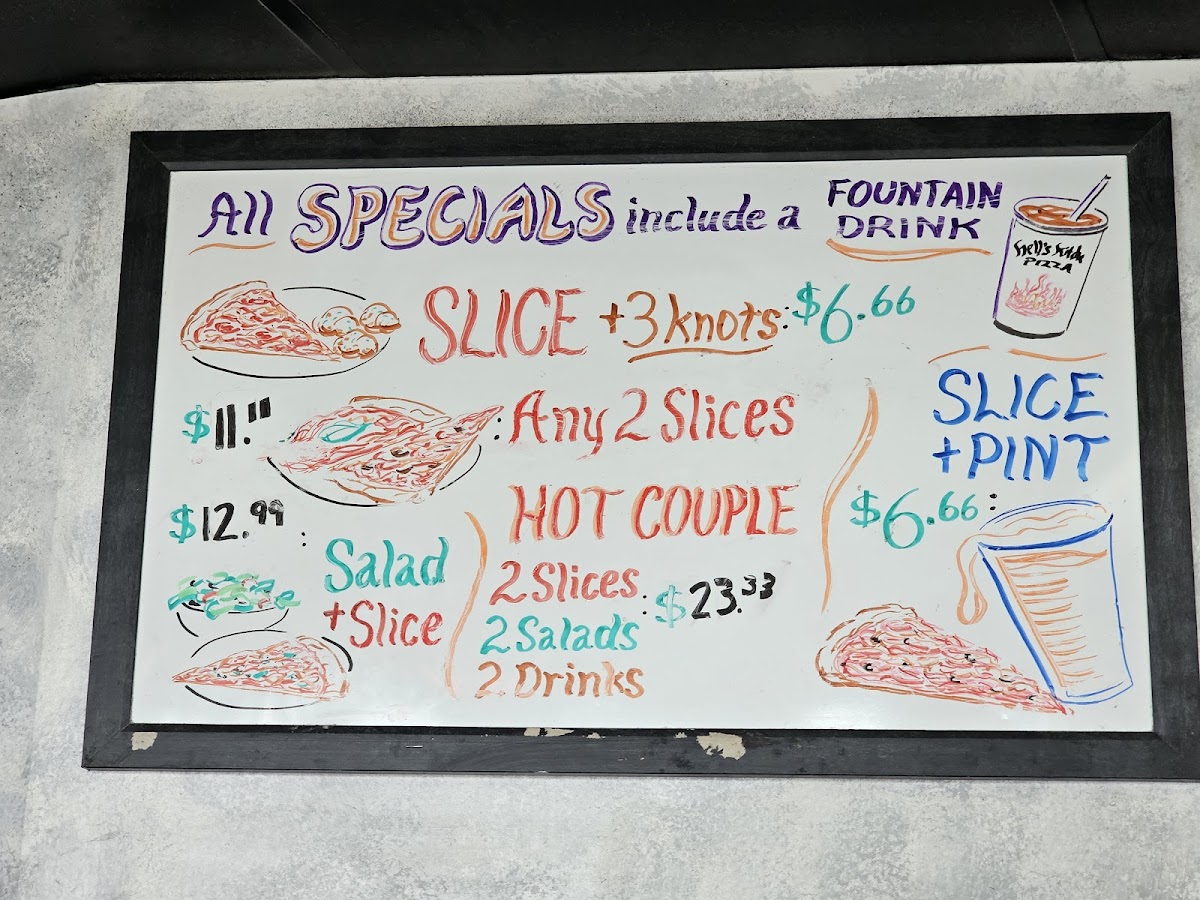 All SPECIALS include a FOUNTAIN DRINK
Hell's Kitchen
PIZZA
SLICE + 3 knots: $6.66
$11.11 : Any 2 Slices
SLICE
+ PINT
$6.66:
$12.99 :
Salad
+ Slice
HOT COUPLE
2 Slices
2 Salads
2 Drinks
: $23.33